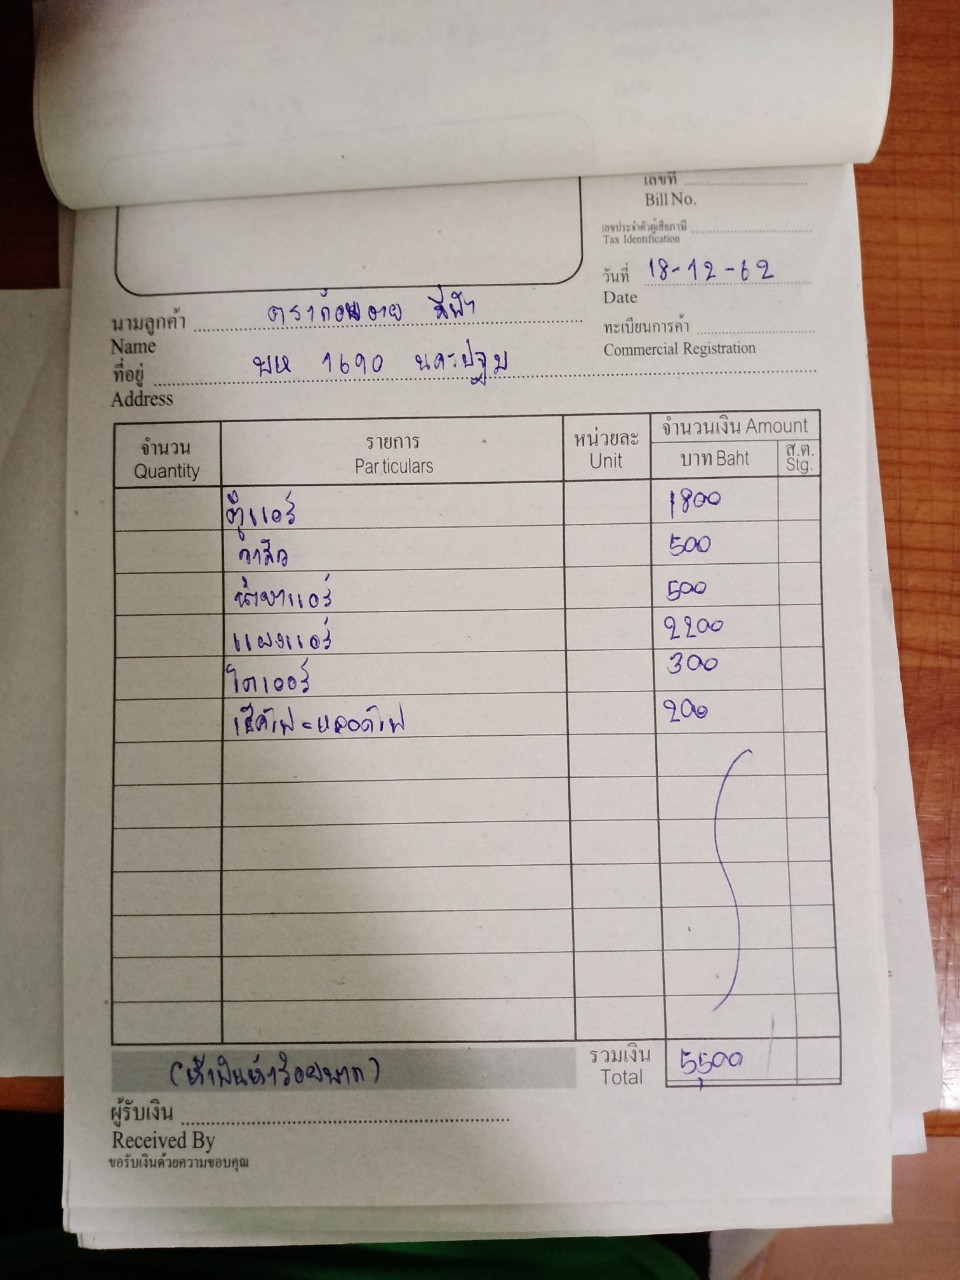 เลขที่
Bill No.
เลขประจำตัวผู้เสียภาษี
Tax Identification
วันที่ 18-12-62
Date
นามลูกค้า ตราก้อนอาย สีฟ้า
Name
ทะเบียนการค้า
Commercial Registration
ที่อยู่ พห 1690 นครปฐม
Address
จำนวน รายการ หน่วยละ จำนวนเงิน Amount
Quantity Particulars Unit บาท Baht ส.ต. Stg.
ตู้แอร์ 1800
วาล์ว 500
น้ำยาแอร์ 500
แผงแอร์ 2200
ไดเออร์ 300
เช็คไฟ = หลอดไฟ 200
(ห้าพันห้าร้อยบาท) รวมเงิน 5500
Total
ผู้รับเงิน
Received By
ขอรับเงินด้วยความขอบคุณ